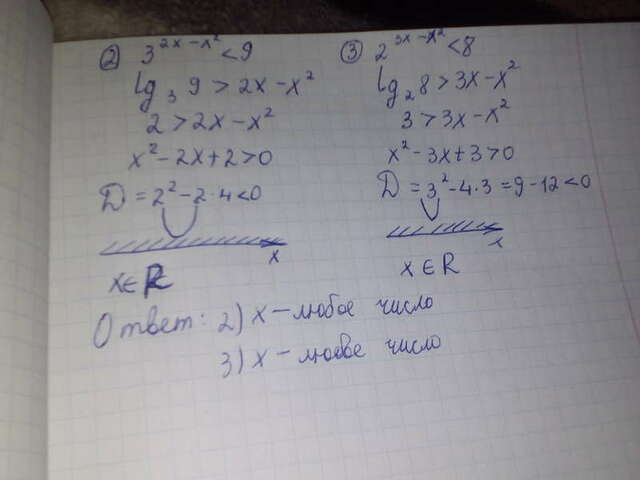 ② 3^(2x-x²) < 9
lg₃ 9 > 2x-x²
2 > 2x-x²
x²-2x+2>0
D = 2²-2·4<0
x
x∈R
③ 2^(3x-x²) < 8
lg₂ 8 > 3x-x²
3 > 3x-x²
x²-3x+3>0
D = 3²-4·3 = 9-12<0
x
x∈R
Ответ: 2) x - любое число
3) x - любое число